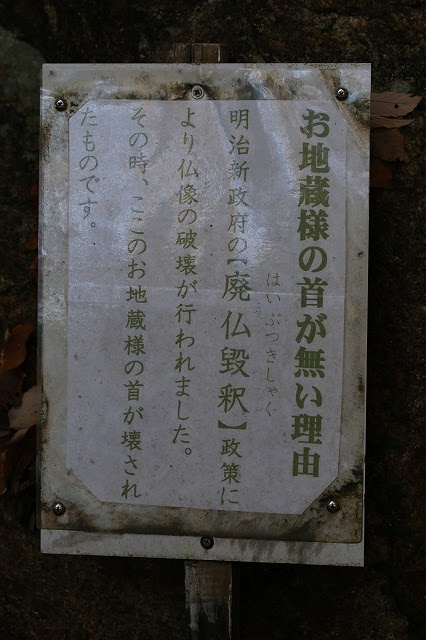 お地蔵様の首が無い理由
はいぶつきしゃく
明治新政府の【廃仏毀釈】政策に
より仏像の破壊が行われました。
その時、ここのお地蔵様の首が壊され
たものです。